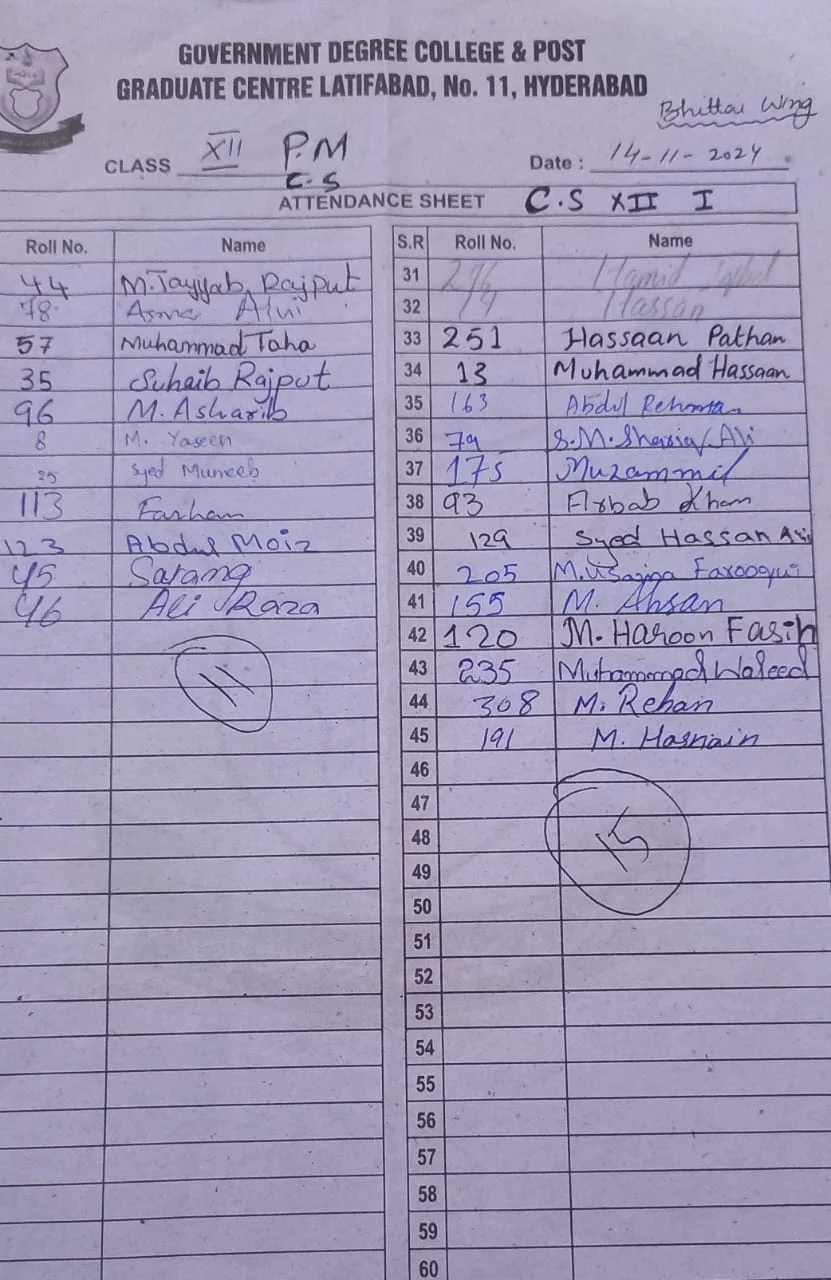 GOVERNMENT DEGREE COLLEGE & POST
GRADUATE CENTRE LATIFABAD, No. 11, HYDERABAD
Bhittai Wing
CLASS XII P.M
C.S
Date : 14-11-2024
ATTENDANCE SHEET C.S XII I
Roll No. Name
44 M. Tayyab Rajput
78
57 Muhammad Taha
35 Suhaib Rajput
96 M. Asharib
8 M. Yaseen
25 Syed Muneeb
113 Farhan
123 Abdul Moiz
45 Sarang
46 Ali Raza
11
S.R Roll No. Name
31 Hamid Iqbal
32 Hassan
33 251 Hassaan Pathan
34 13 Muhammad Hassaan
35 163 Abdul Rehman
36 79 S.M. Ali
37 175 Muzammil
38 93 Arbab Khan
39 129 Syed Hassan Ali
40 205 M. Farooqui
41 155 M. Ahsan
42 120 M. Haroon Fasih
43 235 Muhammad Waleed
44 308 M. Rehan
45 191 M. Hasnain
46
47
48 15
49
50
51
52
53
54
55
56
57
58
59
60